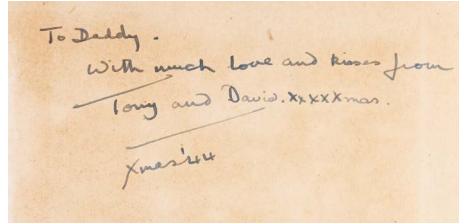 To Daddy.
With much love and kisses from
Tony and David.xxxxXmas.
Xmas '44